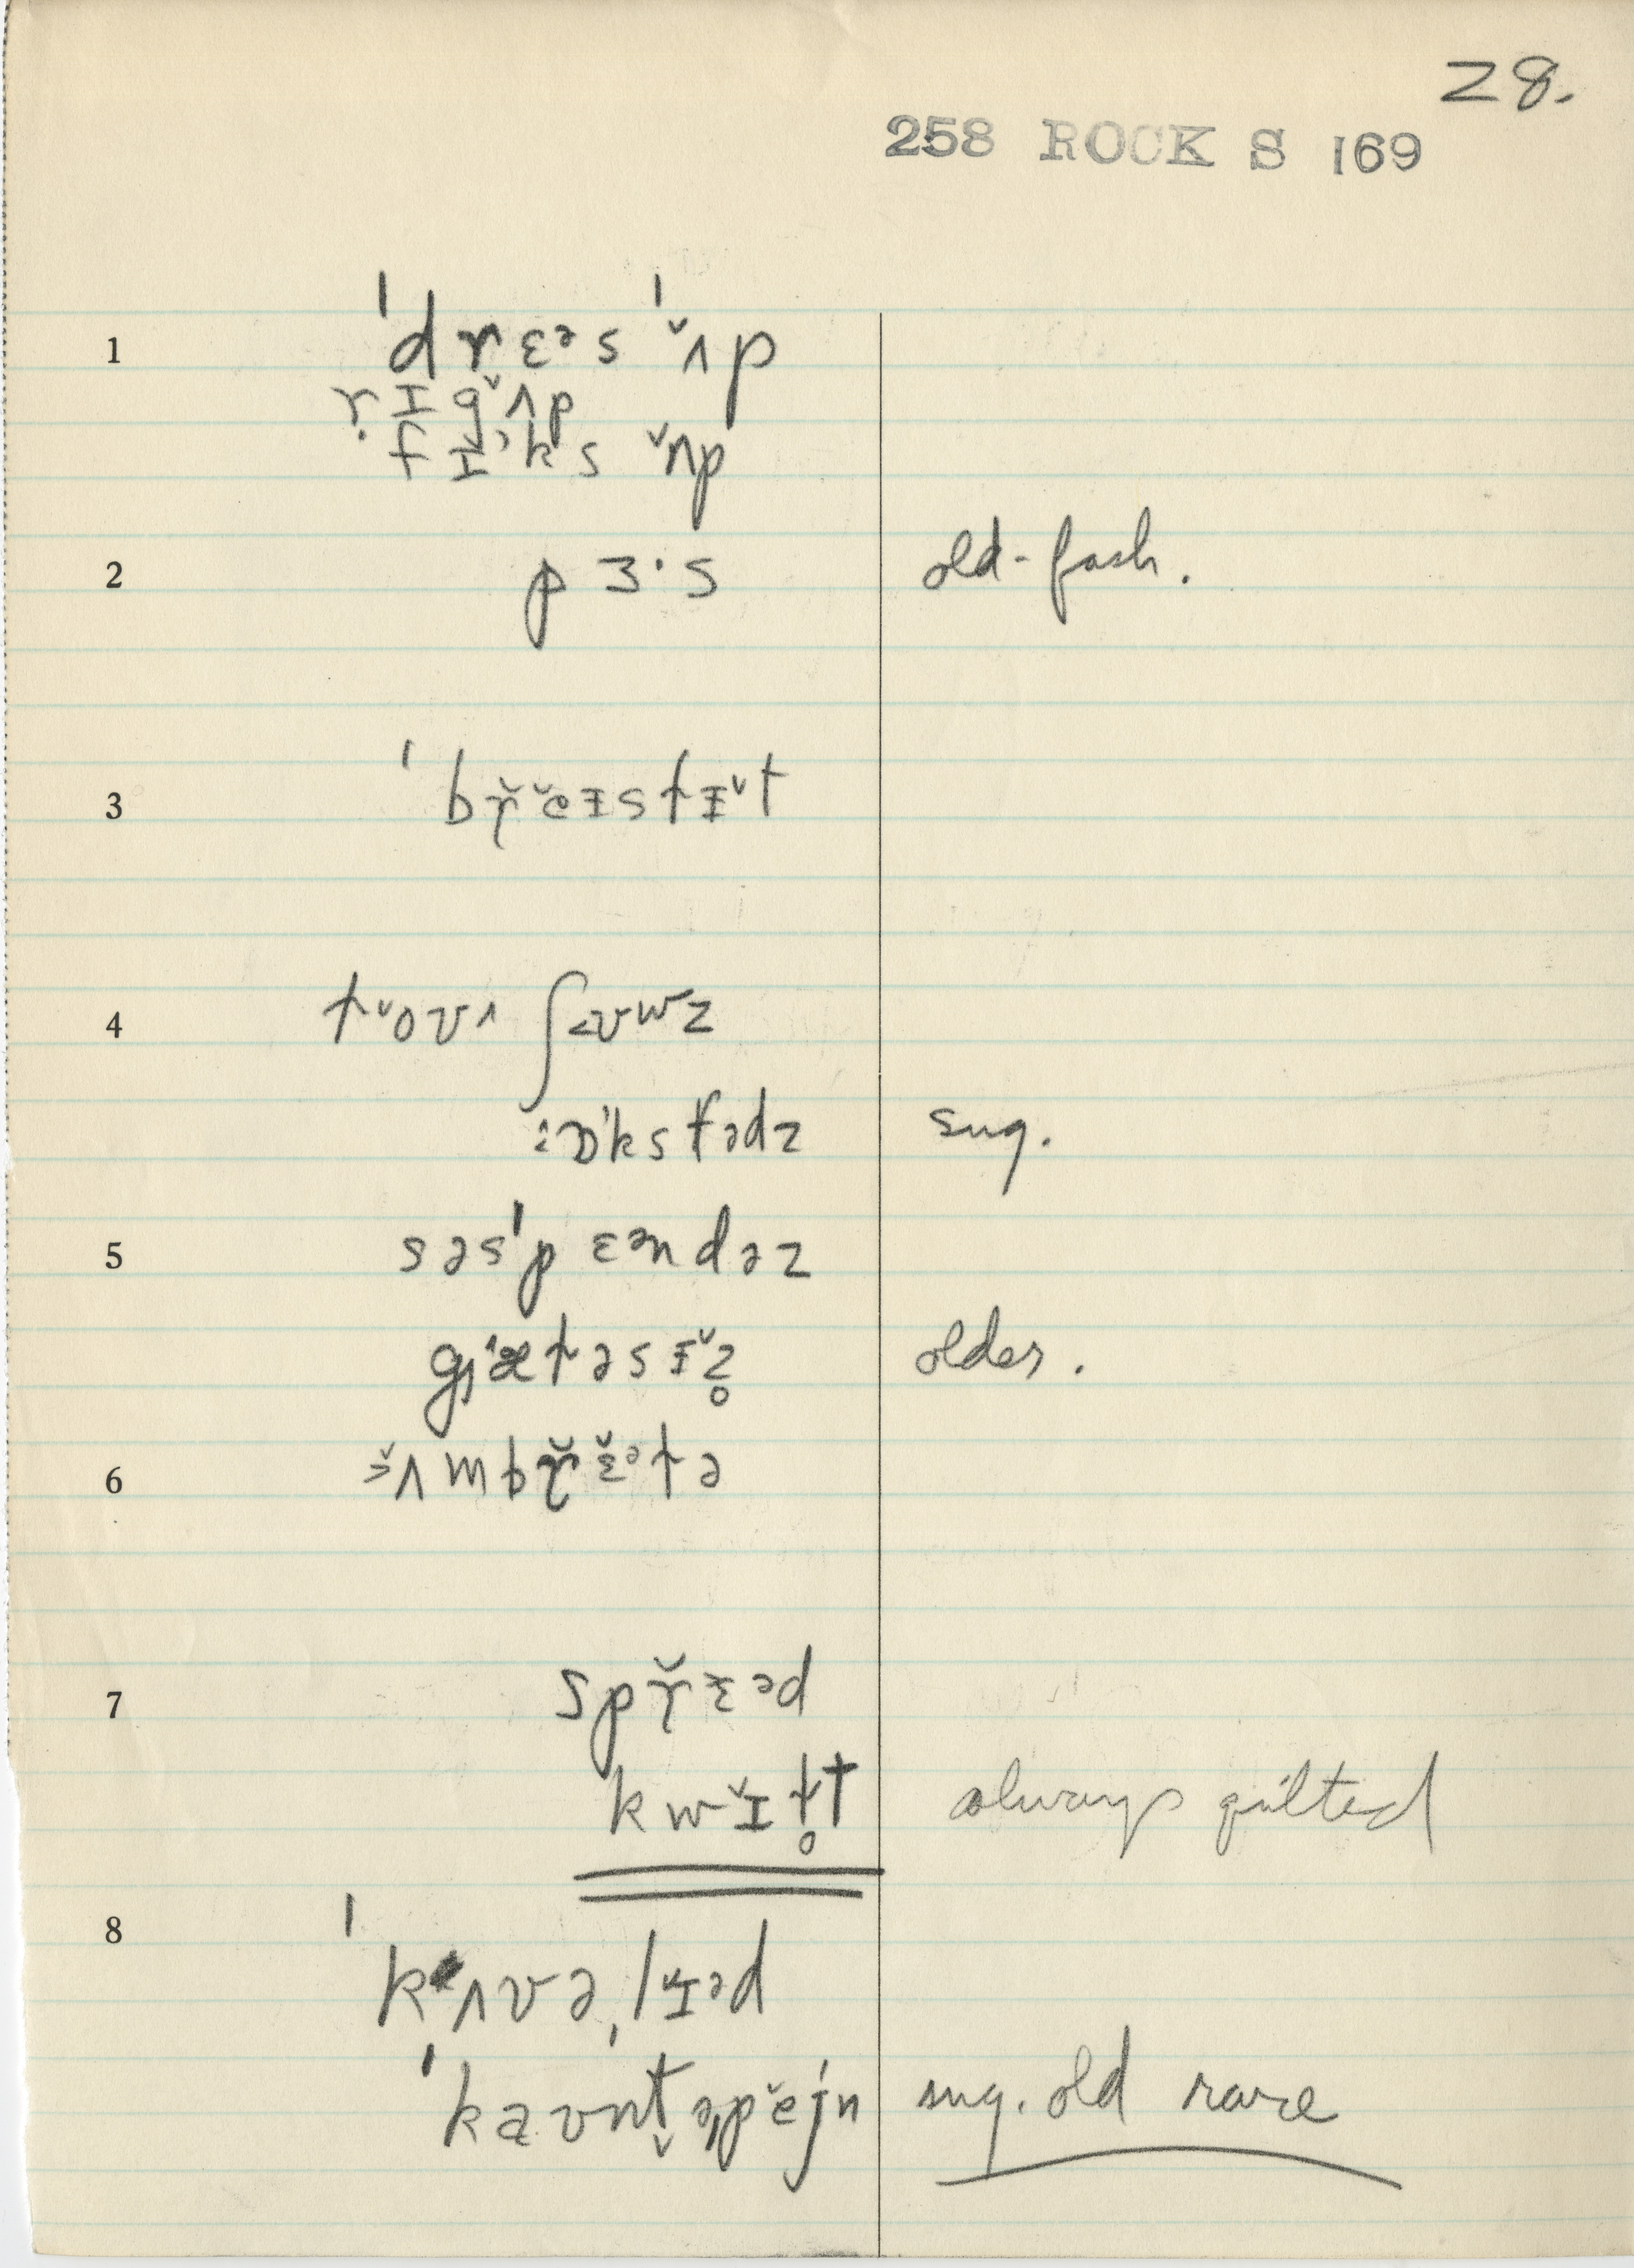 28.
258 ROCK S 169
1 ˈdrɛᵊs ˈʌ̌p
rɪgʌ̌p
fɪks ʌ̌p
2 pɜ·s old-fash.
3 ˈbrěɪstlɪ̌t
4 ɫoʊʌ ʃaʊwz
ɒksfədz sug.
5 səsˈpɛəndəz
gæɫəsɪ̌z̥ older.
6 ʌ̌mbrɛ̌ᵊɫə
7 sprɛᵊd
kwɪ̌ɫ̥t always quilted
8 ˈkʌvəˌlɪəd
ˈkaʊntəˌpějn sug. old rare